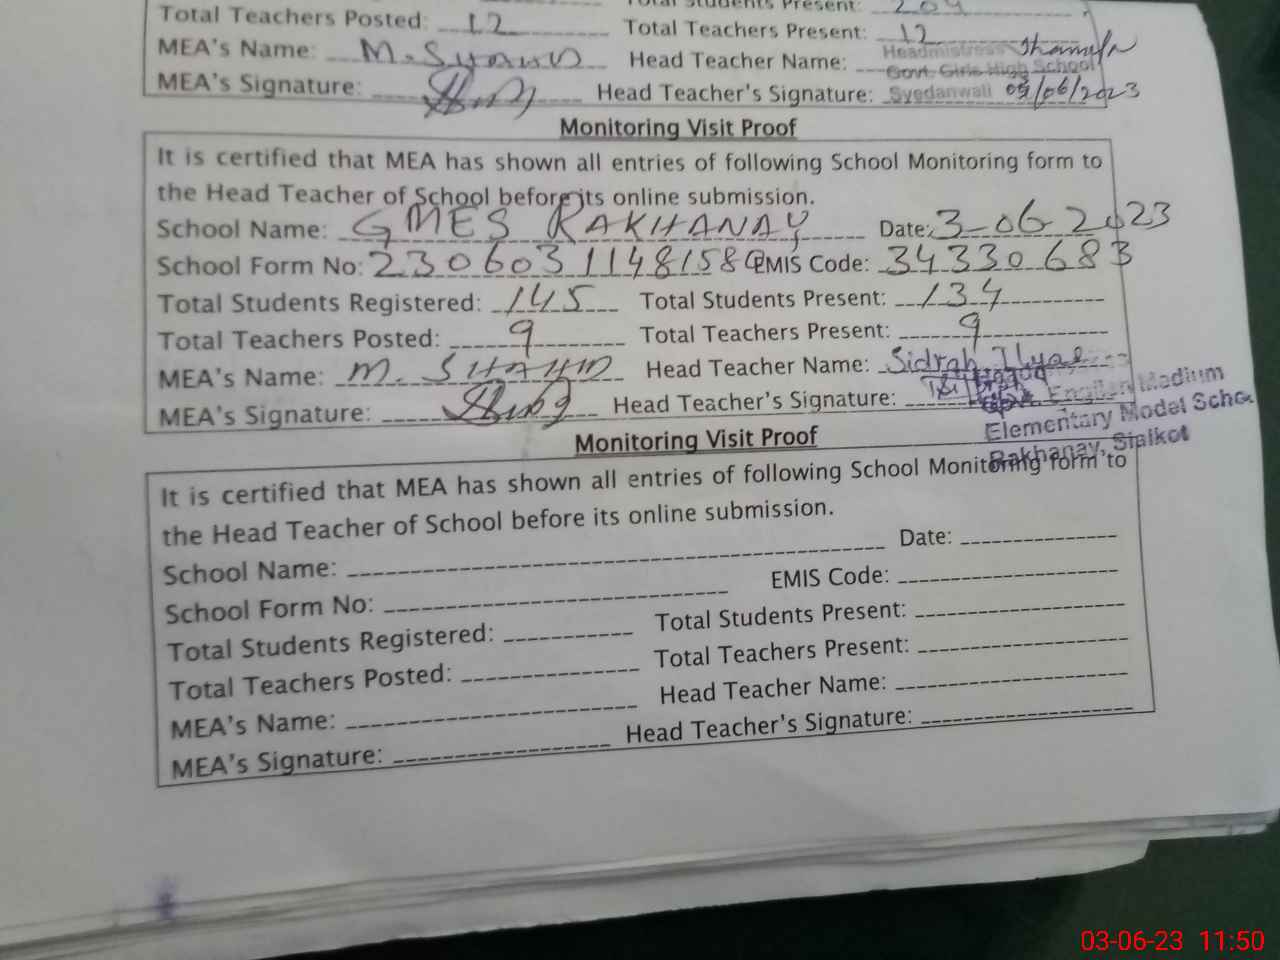 Total Students Present: 204
Total Teachers Posted: 12 Total Teachers Present: 12
MEA's Name: M. Head Teacher Name: Headmistress
Govt. Girls High School
MEA's Signature: Head Teacher's Signature: Syedanwali 03/06/2023
Monitoring Visit Proof
It is certified that MEA has shown all entries of following School Monitoring form to
the Head Teacher of School before its online submission.
School Name: GMES RAKHANAY Date: 3-06-2023
School Form No: 2306031148158 EMIS Code: 34330683
Total Students Registered: 145 Total Students Present: 134
Total Teachers Posted: 9 Total Teachers Present: 9
MEA's Name: M. SHAHID Head Teacher Name: Sidrah Ilyas
MEA's Signature: Head Teacher's Signature:
English Medium
Elementary Model Scho
Rakhanay, Sialkot
Monitoring Visit Proof
It is certified that MEA has shown all entries of following School Monitoring form to
the Head Teacher of School before its online submission.
School Name: Date:
School Form No: EMIS Code:
Total Students Registered: Total Students Present:
Total Teachers Posted: Total Teachers Present:
MEA's Name: Head Teacher Name:
MEA's Signature: Head Teacher's Signature:
03-06-23 11:50